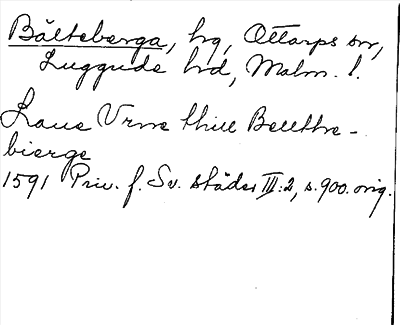 Bälteberga, hg, Ottarps sn,
Luggude hd, Malm. l.
Laue Vrne thill Bellthe-
bierge
1591 Priv. f. Sv. städer III:2, s. 900. orig.